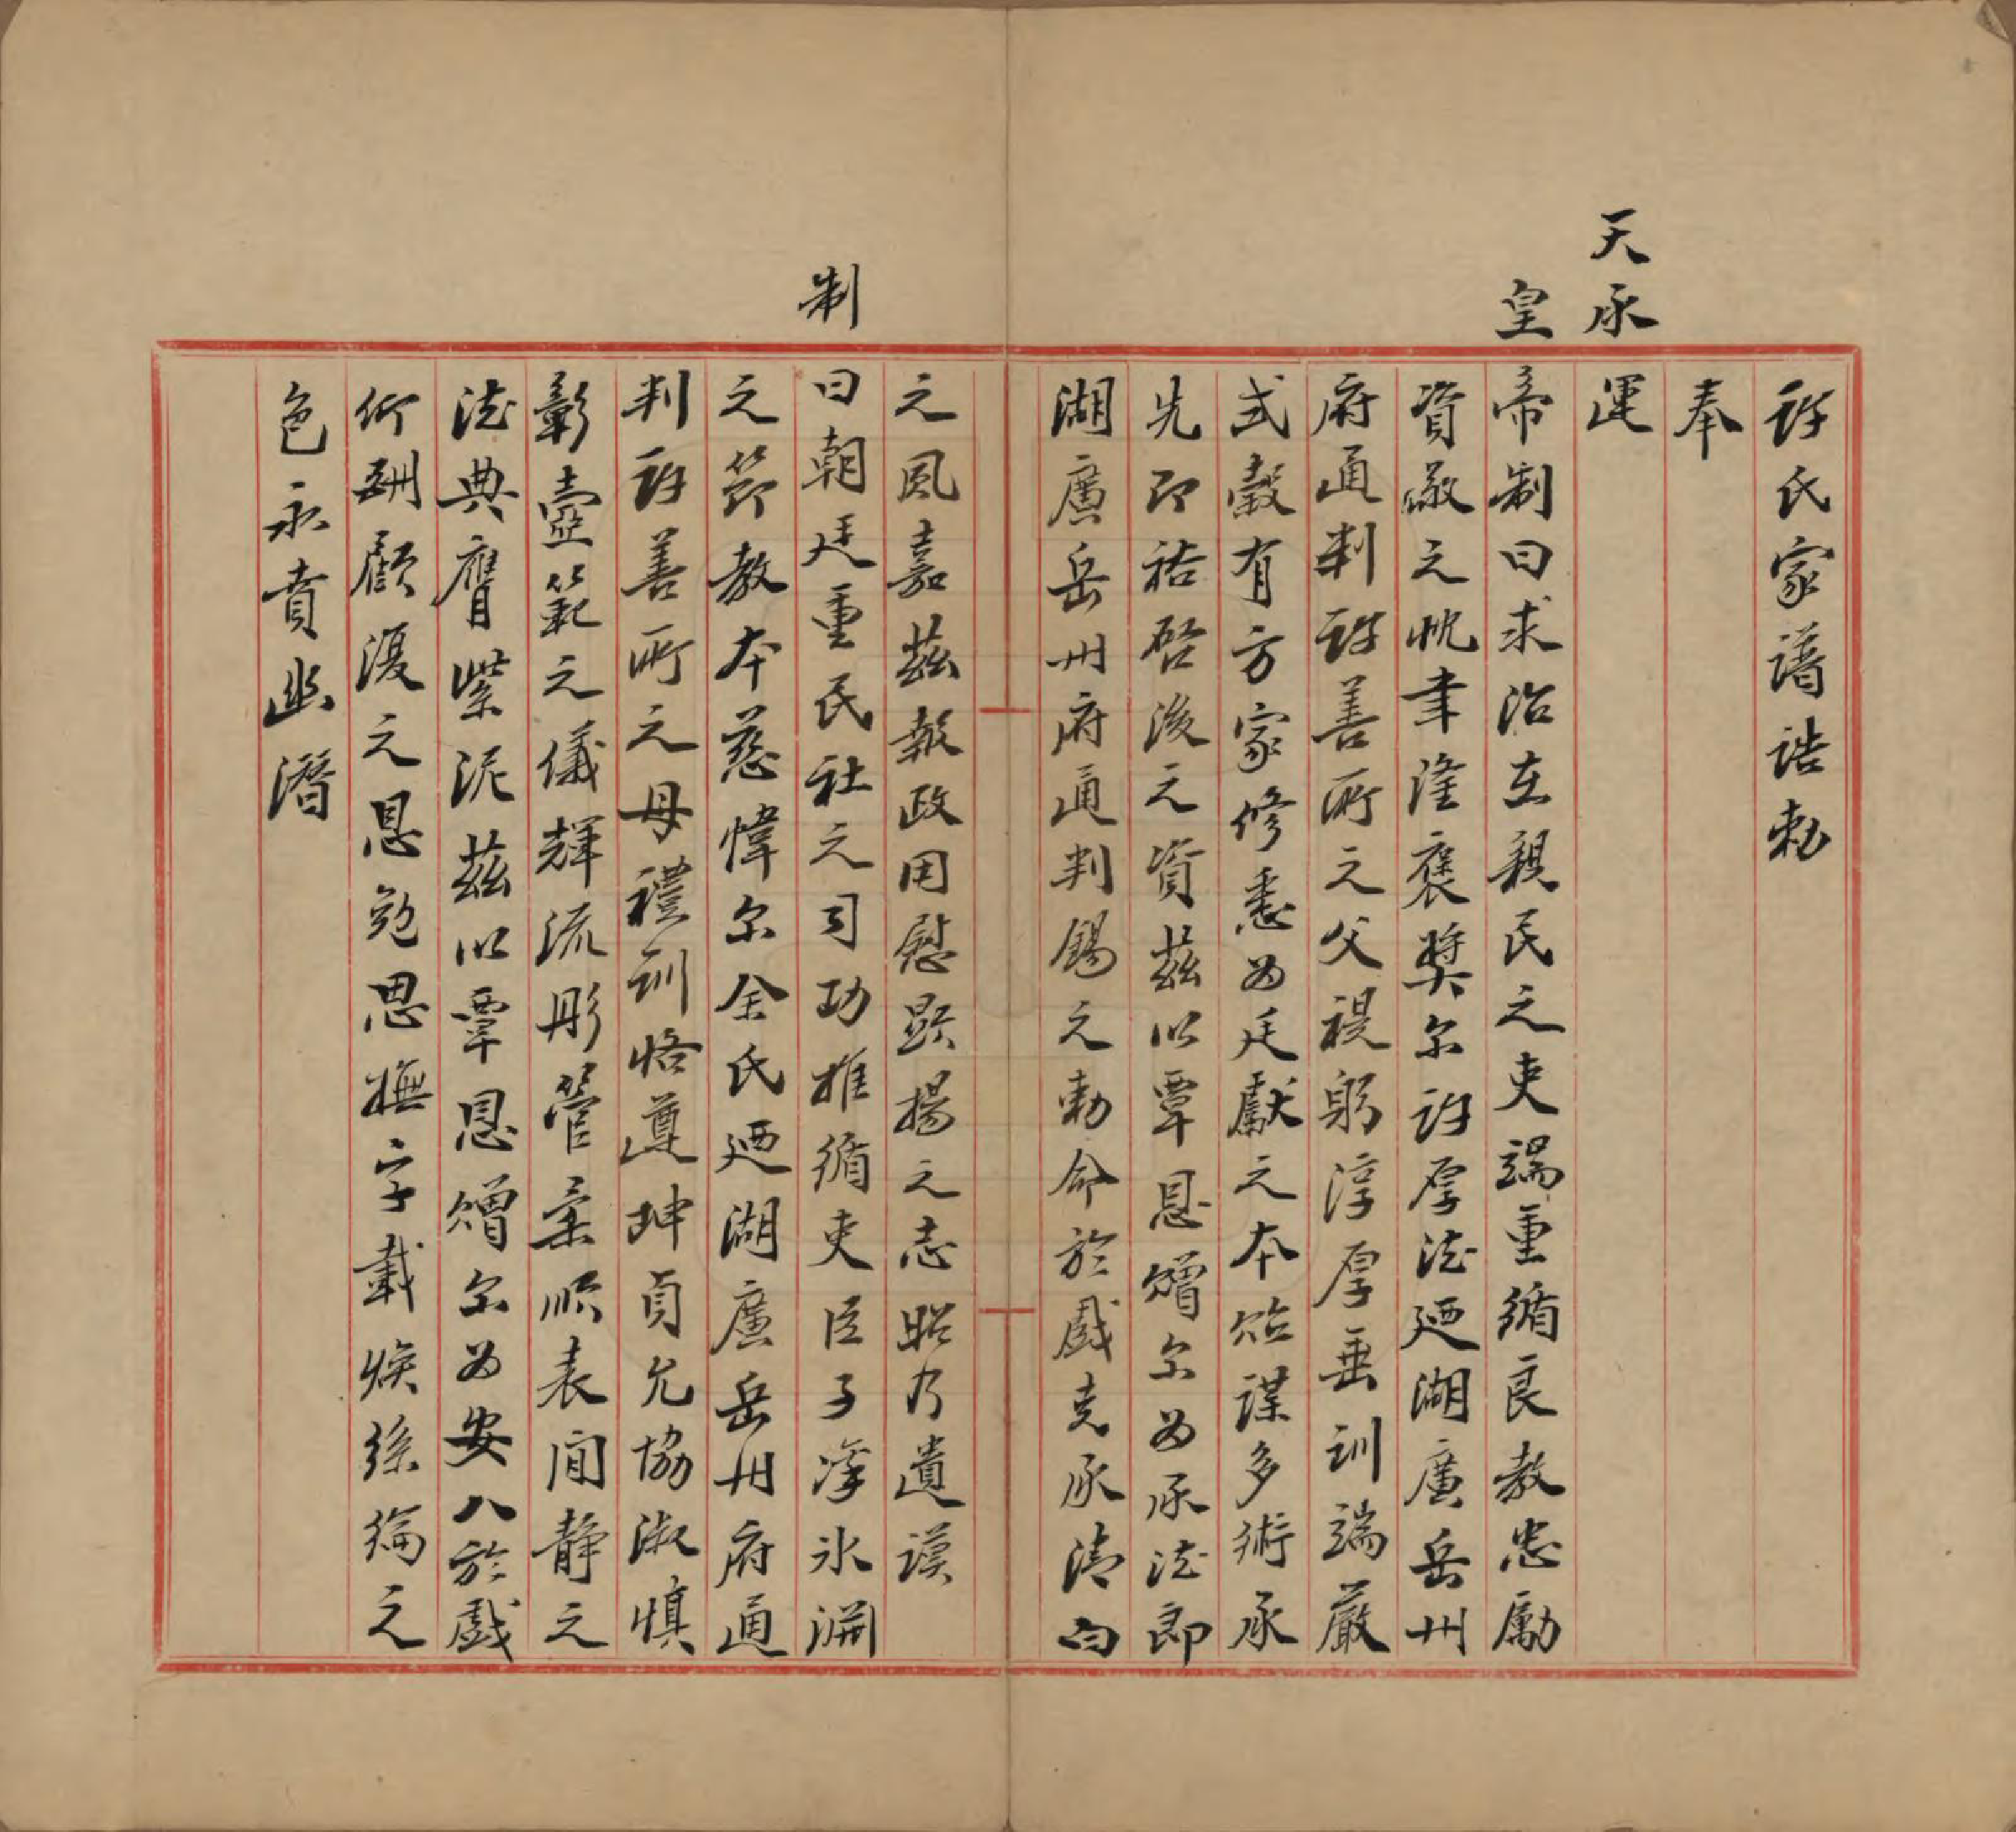 許氏家譜誥勅
奉
天承運
皇帝制曰求治在親民之吏端重循良教忠勵
資敬之忱聿隆褒獎尔許厚德廼湖廣岳州
府通判許善所之父禔躬淳厚垂訓端嚴
式穀有方家修悉為廷獻之本貽謀多術承
先即裕啓後之資茲以覃恩贈尔為承德郎
湖廣岳州府通判錫之勅命於戲克承清白
之風嘉茲報政用慰顯揚之志昭乃遺謨
制曰朝廷重民社之司功推循吏臣子凛氷淵
之節教本慈幃尔金氏廼湖廣岳州府通
判許善所之母禮訓恪遵坤貞允協淑慎
彰壼範之儀輝流彤管柔順表閒靜之
德典膺紫泥茲以覃恩贈尔為安人於戲
仰酬顧復之恩勉思撫字載煥絲綸之
色永賁幽潛